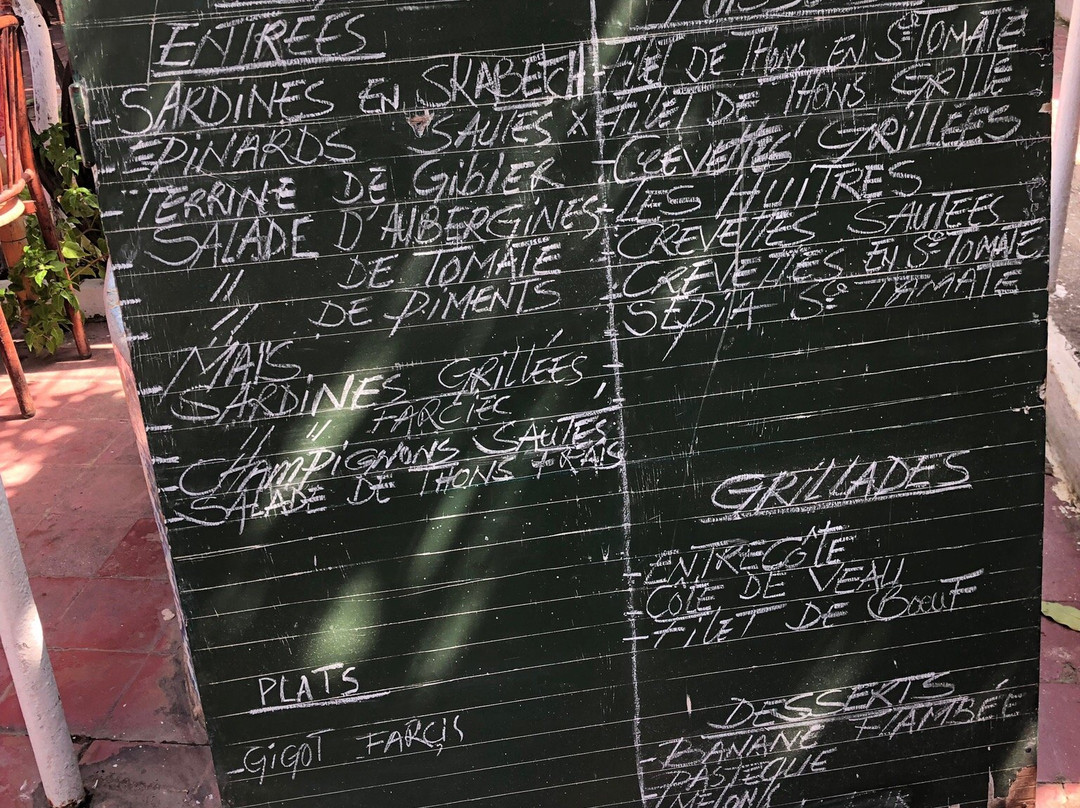 ENTREES
- SARDINES EN SKABECH
- EPINARDS SAUTES X
- TERRINE DE GIBIER
- SALADE D'AUBERGINES
- " DE TOMATE
- " DE PIMENTS
- MAIS
- SARDINES GRILLÉES
- " " FARCIEC
- CHAMPIGNONS SAUTES
- SALADE DE THONS FRAIS
PLATS
- GIGOT FARCIS
- FILET DE THONS EN Sce TOMATE
- FILET DE THONS GRILLE
- CREVETTES GRILLÉES
- LES HUITRES
- CREVETTES SAUTEES
- CREVETTES EN Sce TOMATE
- SEPIA Sce TAMATE
GRILLADES
- ENTRECÔTE
- COTE DE VEAU
- FILET DE BOEUF
DESSERTS
- BANANE FLAMBÉE
- PASTEQUE
- MELONS